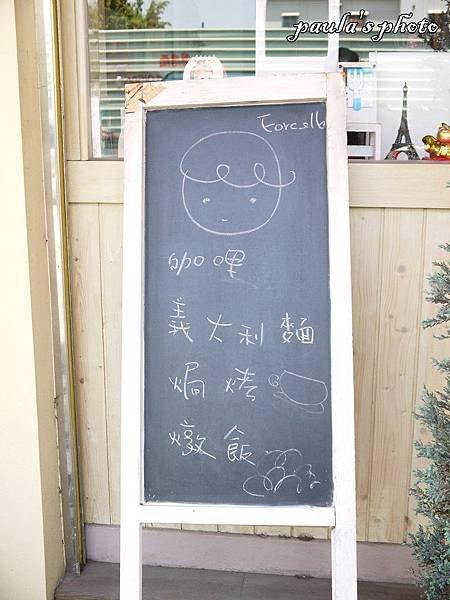 paula's photo
咖哩
義大利麵
焗烤
燉飯